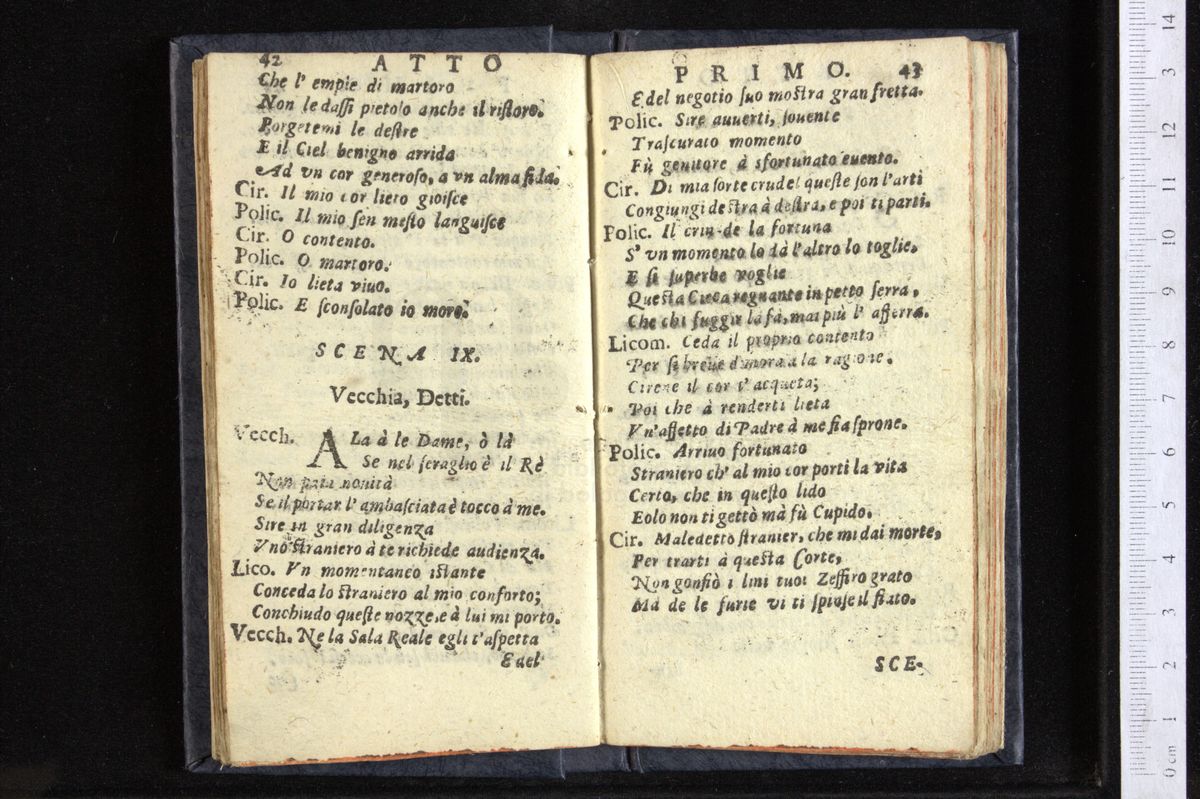 42 ATTO
Che l' empie di martoro
Non le dassi pietoso anche il ristoro.
Porgetemi le destre
E il Ciel benigno arrida
Ad vn cor generoso, a vn alma fida.
Cir. Il mio cor lieto gioisce
Polic. Il mio sen mesto languisce
Cir. O contento.
Polic. O martoro.
Cir. Io lieta viuo.
Polic. E sconsolato io moro.
SCENA IX.
Vecchia, Detti.
Vecch. ALa à le Dame, ò là
Se nel seraglio è il Rè
Non paia nouità
Se il portar l' ambasciata è tocco à me.
Sire in gran diligenza
Vno straniero à te richiede audienza.
Lico. Vn momentaneo istante
Conceda lo straniero al mio conforto;
Conchiudo queste nozze, e à lui mi porto.
Vecch. Ne la Sala Reale egli t'aspetta
E del
PRIMO. 43
E del negotio suo mostra gran fretta.
Polic. Sire auuerti, souente
Trascurato momento
Fù genitore à sfortunato euento.
Cir. Di mia sorte crudel queste son l'arti
Congiungi destra à destra, e poi ti parti.
Polic. Il crin de la fortuna
S' vn momento lo dà l'altro lo toglie.
E si superbe voglie
Questa Cieca regnante in petto serra,
Che chi fuggir la fà, mai più l' afferra.
Licom. Ceda il proprio contento
Per sì breue dimora a la ragione.
Cirene il cor t' acqueta;
Poi che à renderti lieta
Vn'affetto di Padre à me fia sprone.
Polic. Arriuo fortunato
Straniero ch' al mio cor porti la vita
Certo, che in questo lido
Eolo non ti gettò mà fù Cupido.
Cir. Maledetto stranier, che mi dai morte,
Per trarti à questa Corte,
Non gonfiò i lini tuoi Zeffiro grato
Ma de le furie vi ti spinse il fiato.
SCE-